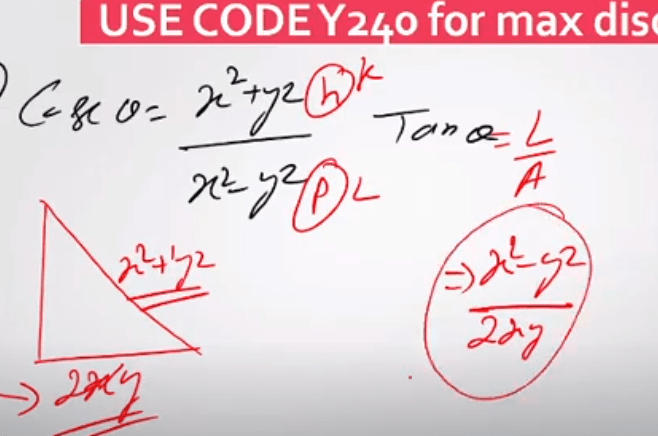 USE CODE Y240 for max disc
Cosec θ = x²+y² (h) k
x²-y² (p) L
Tan θ = L
A
x²+y²
⇒ x²-y²
2xy
→ 2xy